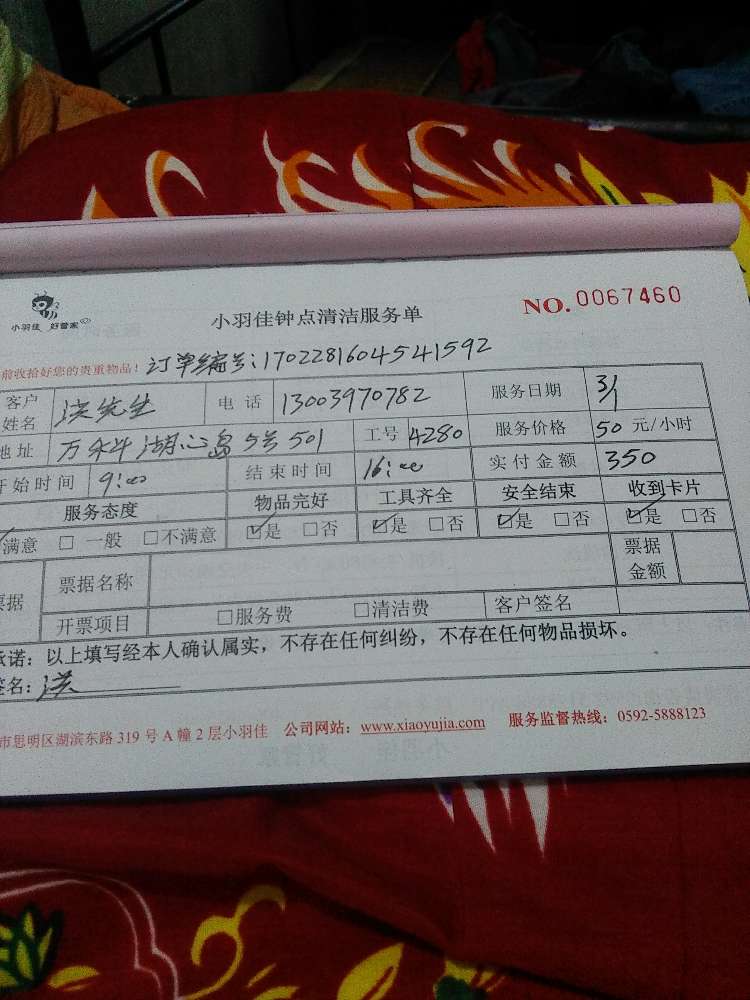 小羽佳 好管家
小羽佳钟点清洁服务单
NO. 0067460
前收拾好您的贵重物品！ 订单编号：1702281604541592
客户姓名 洪先生 电话 13003970782 服务日期 3/1
地址 万科湖心岛5号501 工号 4280 服务价格 50 元/小时
开始时间 9:00 结束时间 16:00 实付金额 350
服务态度 物品完好 工具齐全 安全结束 收到卡片
满意 □ 一般 □不满意 ☑是 □否 ☑是 □否 ☑是 □否 ☑是 □否
票据 票据名称 票据金额
开票项目 □服务费 □清洁费 客户签名
承诺：以上填写经本人确认属实，不存在任何纠纷，不存在任何物品损坏。
签名：洪
市思明区湖滨东路 319 号 A 幢 2 层小羽佳 公司网站：www.xiaoyujia.com 服务监督热线：0592-5888123